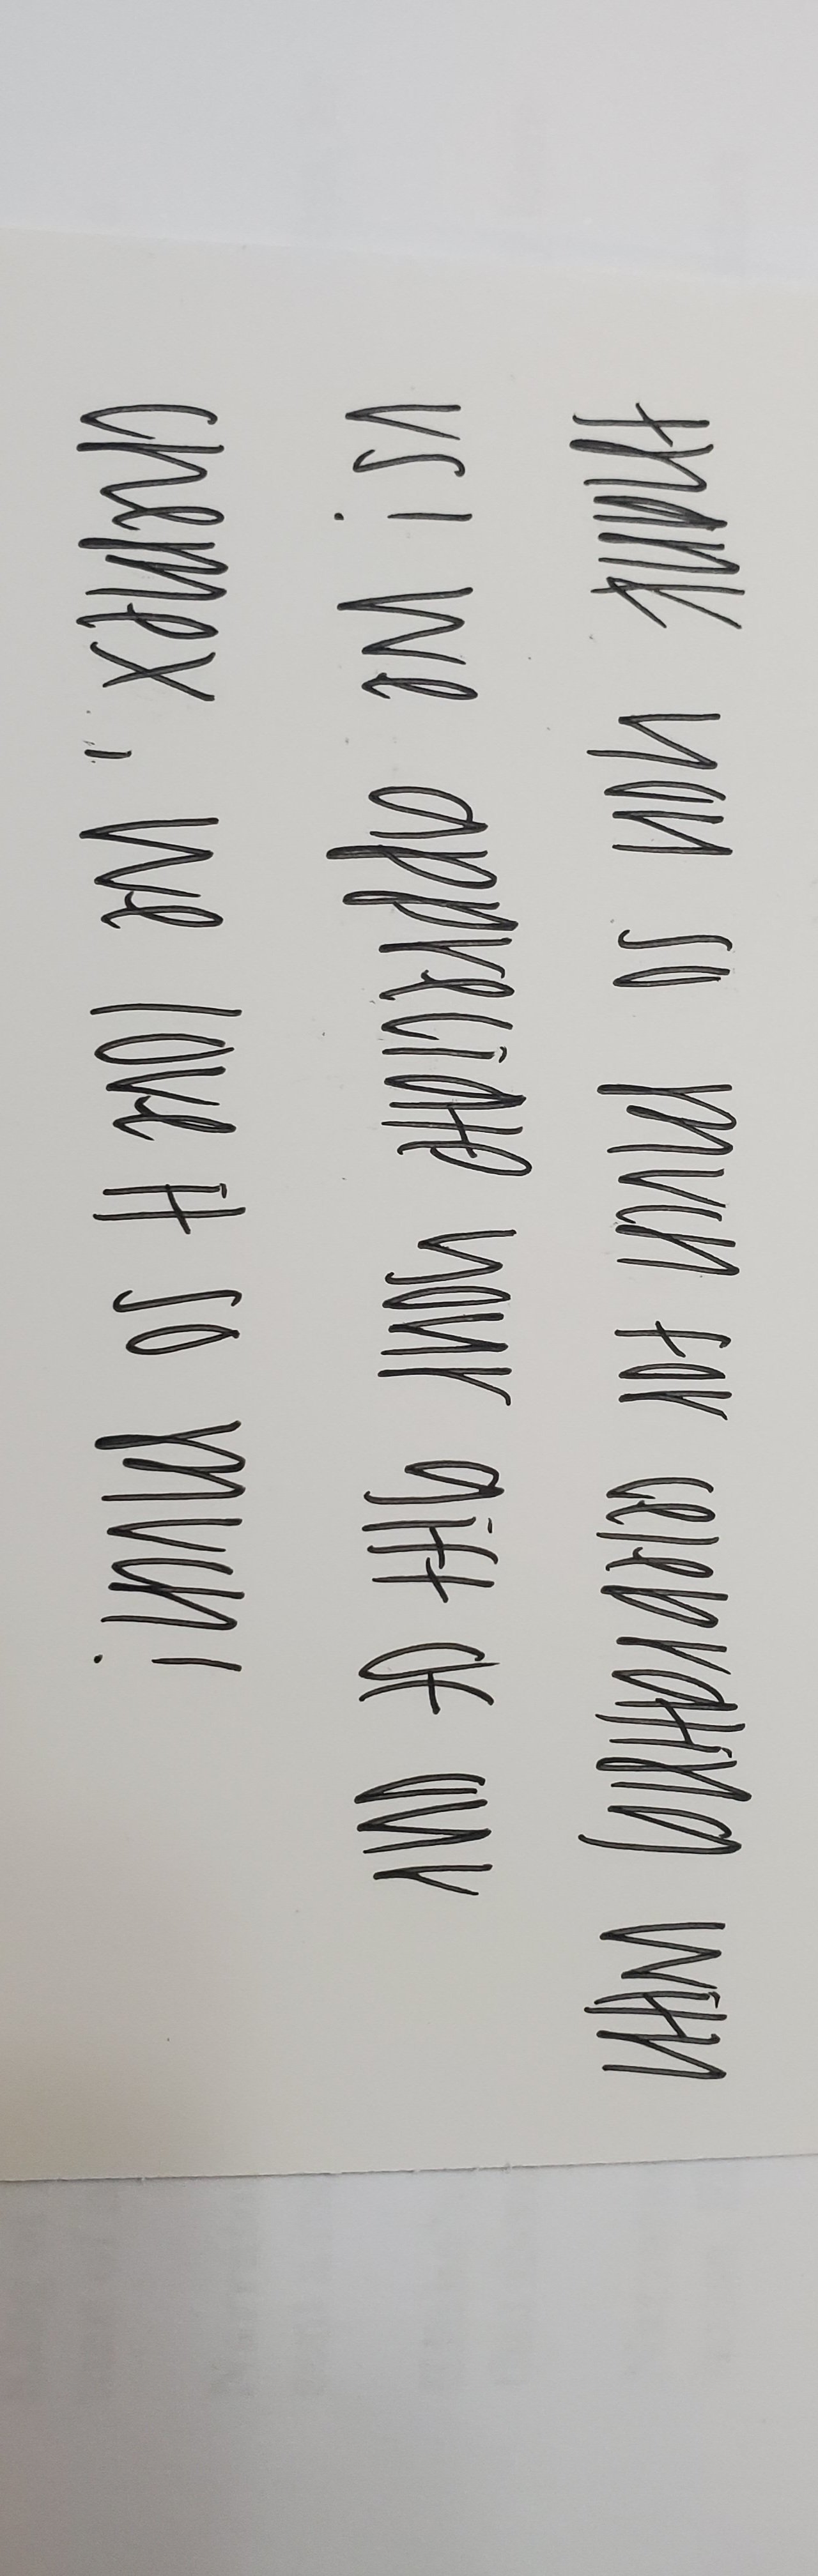 thank you so much for celebrating with
us! We appreciate your gift of our
chemex, we love it so much!